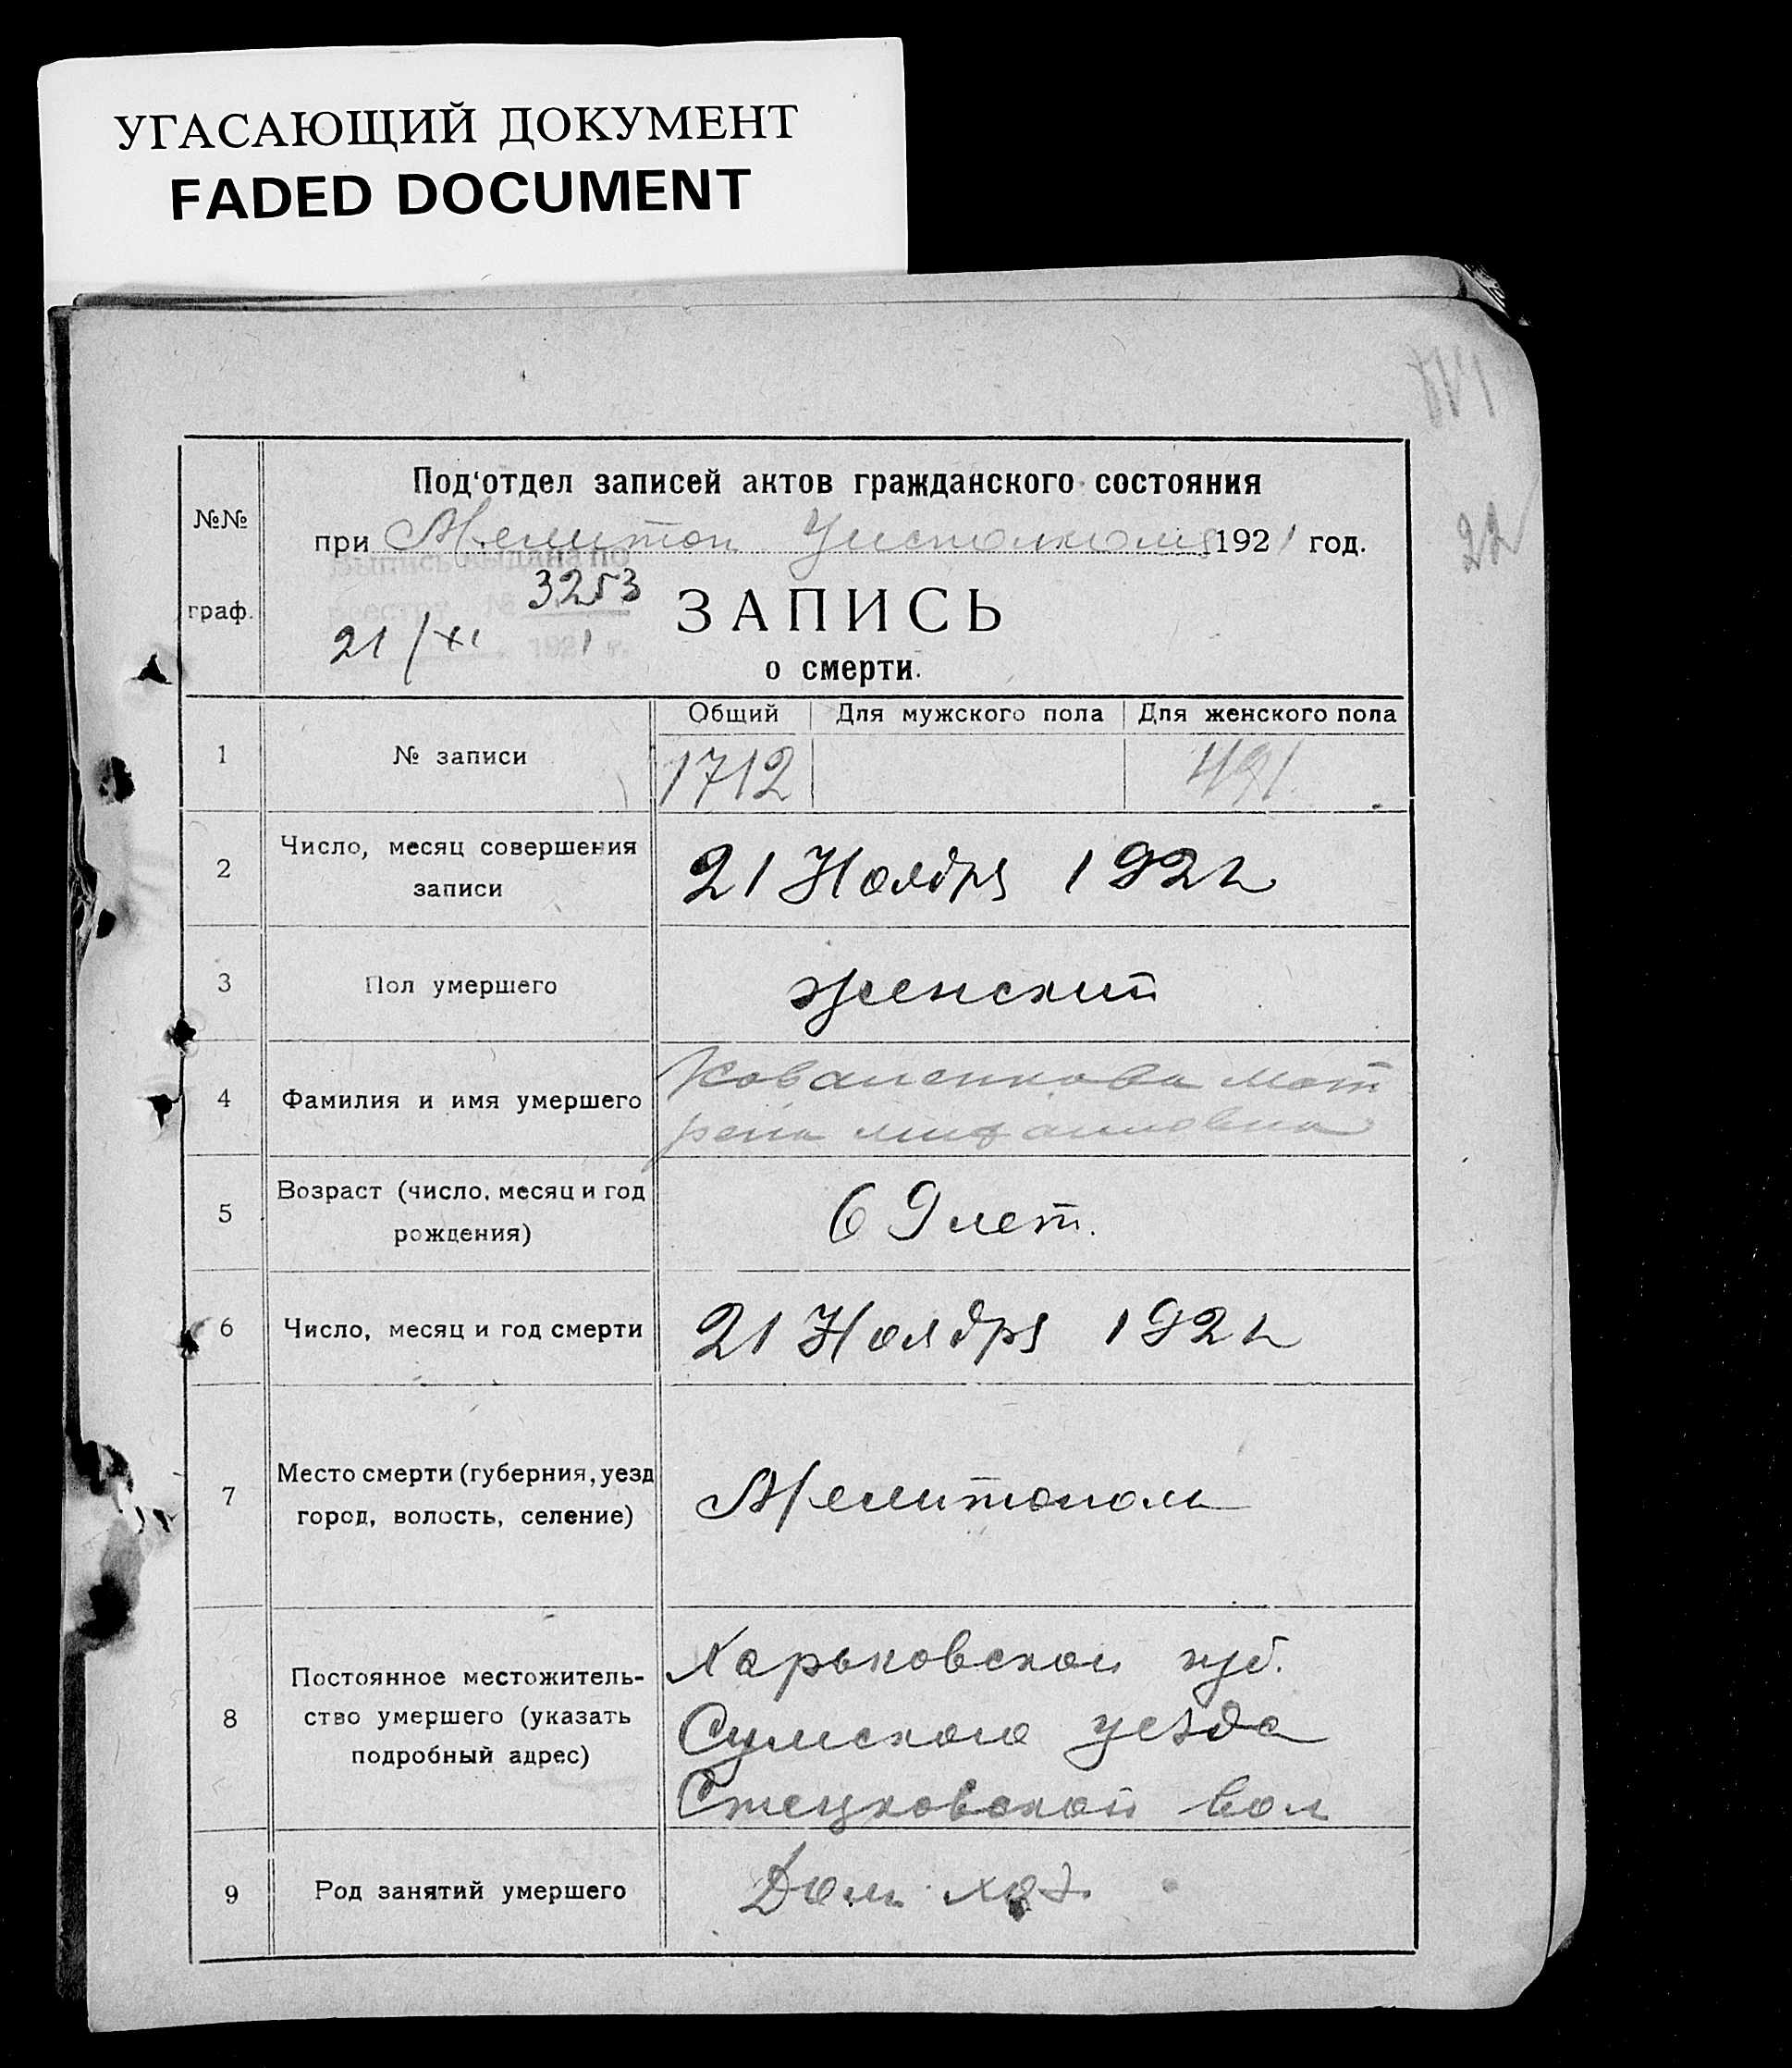 УГАСАЮЩИЙ ДОКУМЕНТ
FADED DOCUMENT
22
№№ граф.
Под‘отдел записей актов гражданского состояния
при Мелитоп Уисполкоме 1921 год.
Выпись выдана по
реестру № 3253
21/XI 1921 г.
ЗАПИСЬ
о смерти.
Общий Для мужского пола Для женского пола
1 № записи 1712 491.
2 Число, месяц совершения
записи
21 Ноября 192
3 Пол умершего женский
4 Фамилия и имя умершего
Коваленкова Мат
рена Михаиловна
5 Возраст (число, месяц и год
рождения)
69 лет.
6 Число, месяц и год смерти 21 Ноября 192
7 Место смерти (губерния, уезд
город, волость, селение)
Мелитополь
8 Постоянное местожитель-
ство умершего (указать
подробный адрес)
Харьковской губ.
Сумского уезда
Стецковской вол
9 Род занятий умершего Дом. хоз.